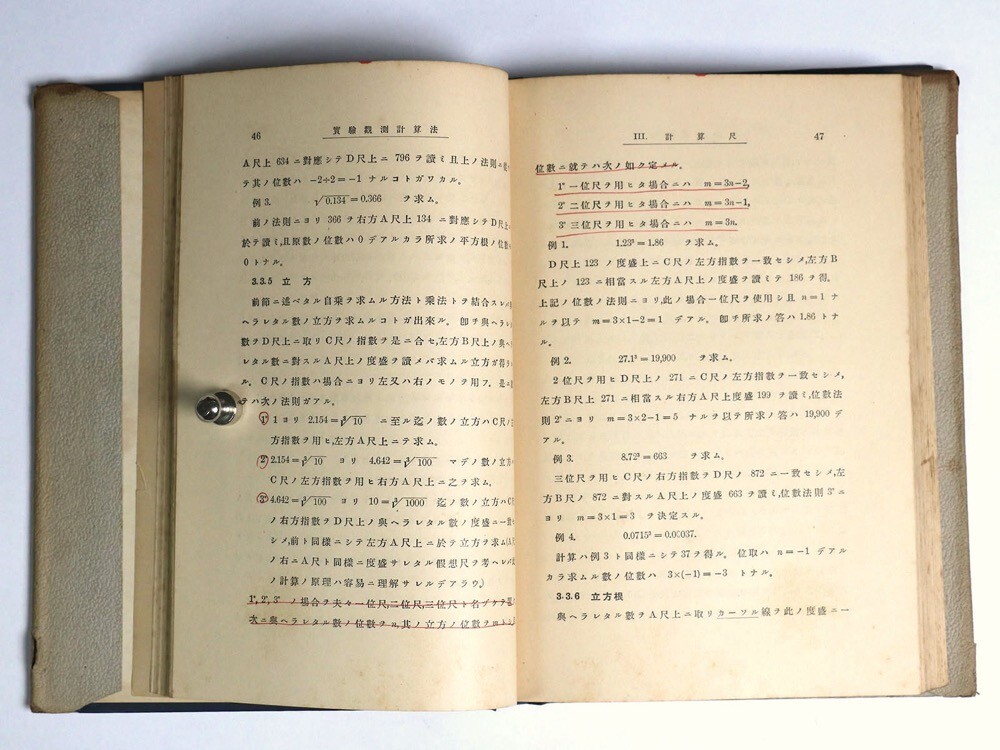 46
實驗觀測計算法
A尺上 634 ニ對應シテD尺上ニ 796 ヲ讀ミ且上ノ法則ニ
テ其ノ位數ハ -2÷2=-1 ナルコトガワカル。
例 3. √0.134=0.366 ヲ求ム。
前ノ法則ニヨリ 366 ヲ右方A尺上 134 ニ對應シテD尺
於テ讀ミ,且原數ノ位數ハ 0 デアルカラ所求ノ平方根ノ位
0 トナル。
3.3.5 立方
前節ニ述ベタル自乘ヲ求ムル方法ト乘法トヲ結合スレバ
ヘラレタル數ノ立方ヲ求ムルコトガ出來ル。 卽チ與ヘラレ
數ヲD尺上ニ取リC尺ノ指數ヲ是ニ合セ,左方B尺上ノ與ヘ
レタル數ニ對スルA尺上ノ度盛ヲ讀メバ求ムル立方ガ得ラ
ル。 C尺ノ指數ハ場合ニヨリ左又ハ右ノモノヲ用フ。 是ニ
テハ次ノ法則ガアル。
1° 1 ヨリ 2.154=∛10 ニ至ル迄ノ數ノ立方ハC尺ノ
方指數ヲ用ヒ,左方A尺上ニテ求ム。
2° 2.154=∛10 ヨリ 4.642=∛100 マデノ數ノ立方
C尺ノ左方指數ヲ用ヒ右方A尺上ニ之ヲ求ム。
3° 4.642=∛100 ヨリ 10=∛1000 迄ノ數ノ立方ハC
ノ右方指數ヲD尺上ノ與ヘラレタル數ノ度盛ニ一
シメ,前ト同樣ニシテ左方A尺上ニ於テ立方ヲ求ム(A
ノ右ニA尺ト同樣ニ度盛サレタル假想尺ヲ考ヘレバ
ノ計算ノ原理ハ容易ニ理解サレルデアラウ。)
1°, 2°, 3° ノ場合ヲ夫々一位尺,二位尺,三位尺ト名ヅケテ
次ニ與ヘラレタル數ノ位數ヲ n, 其ノ立方ノ位數ヲ m ト
III. 計算尺
47
位數ニ就テハ次ノ如ク定メル。
1° 一位尺ヲ用ヒタ場合ニハ m=3n-2,
2° 二位尺ヲ用ヒタ場合ニハ m=3n-1,
3° 三位尺ヲ用ヒタ場合ニハ m=3n.
例 1. 1.23³=1.86 ヲ求ム。
D尺上 123 ノ度盛上ニC尺ノ左方指數ヲ一致セシメ,左方B
尺上ノ 123 ニ相當スル左方A尺上ノ度盛ヲ讀ミテ 186 ヲ得。
上記ノ位數ノ法則ニヨリ,此ノ場合一位尺ヲ使用シ且 n=1 ナ
ルヲ以テ m=3×1-2=1 デアル。 卽チ所求ノ答ハ 1.86 トナ
ル。
例 2. 27.1³=19,900 ヲ求ム。
2 位尺ヲ用ヒD尺上ノ 271 ニC尺ノ左方指數ヲ一致セシメ,
左方B尺上 271 ニ相當スル右方A尺上度盛 199 ヲ讀ミ,位數法
則 2° ニヨリ m=3×2-1=5 ナルヲ以テ所求ノ答ハ 19,900 デ
アル。
例 3. 8.72³=663 ヲ求ム。
三位尺ヲ用ヒC尺ノ右方指數ヲD尺ノ 872 ニ一致セシメ,左
方B尺ノ 872 ニ對スルA尺上ノ度盛 663 ヲ讀ミ,位數法則 3° ニ
ヨリ m=3×1=3 ヲ決定スル。
例 4. 0.0715³=0.00037.
計算ハ例 3 ト同樣ニシテ 37 ヲ得ル。 位取ハ n=-1 デアル
カラ求ムル數ノ位數ハ 3×(-1)=-3 トナル。
3.3.6 立方根
與ヘラレタル數ヲA尺上ニ取リカーソル線ヲ此ノ度盛ニ一